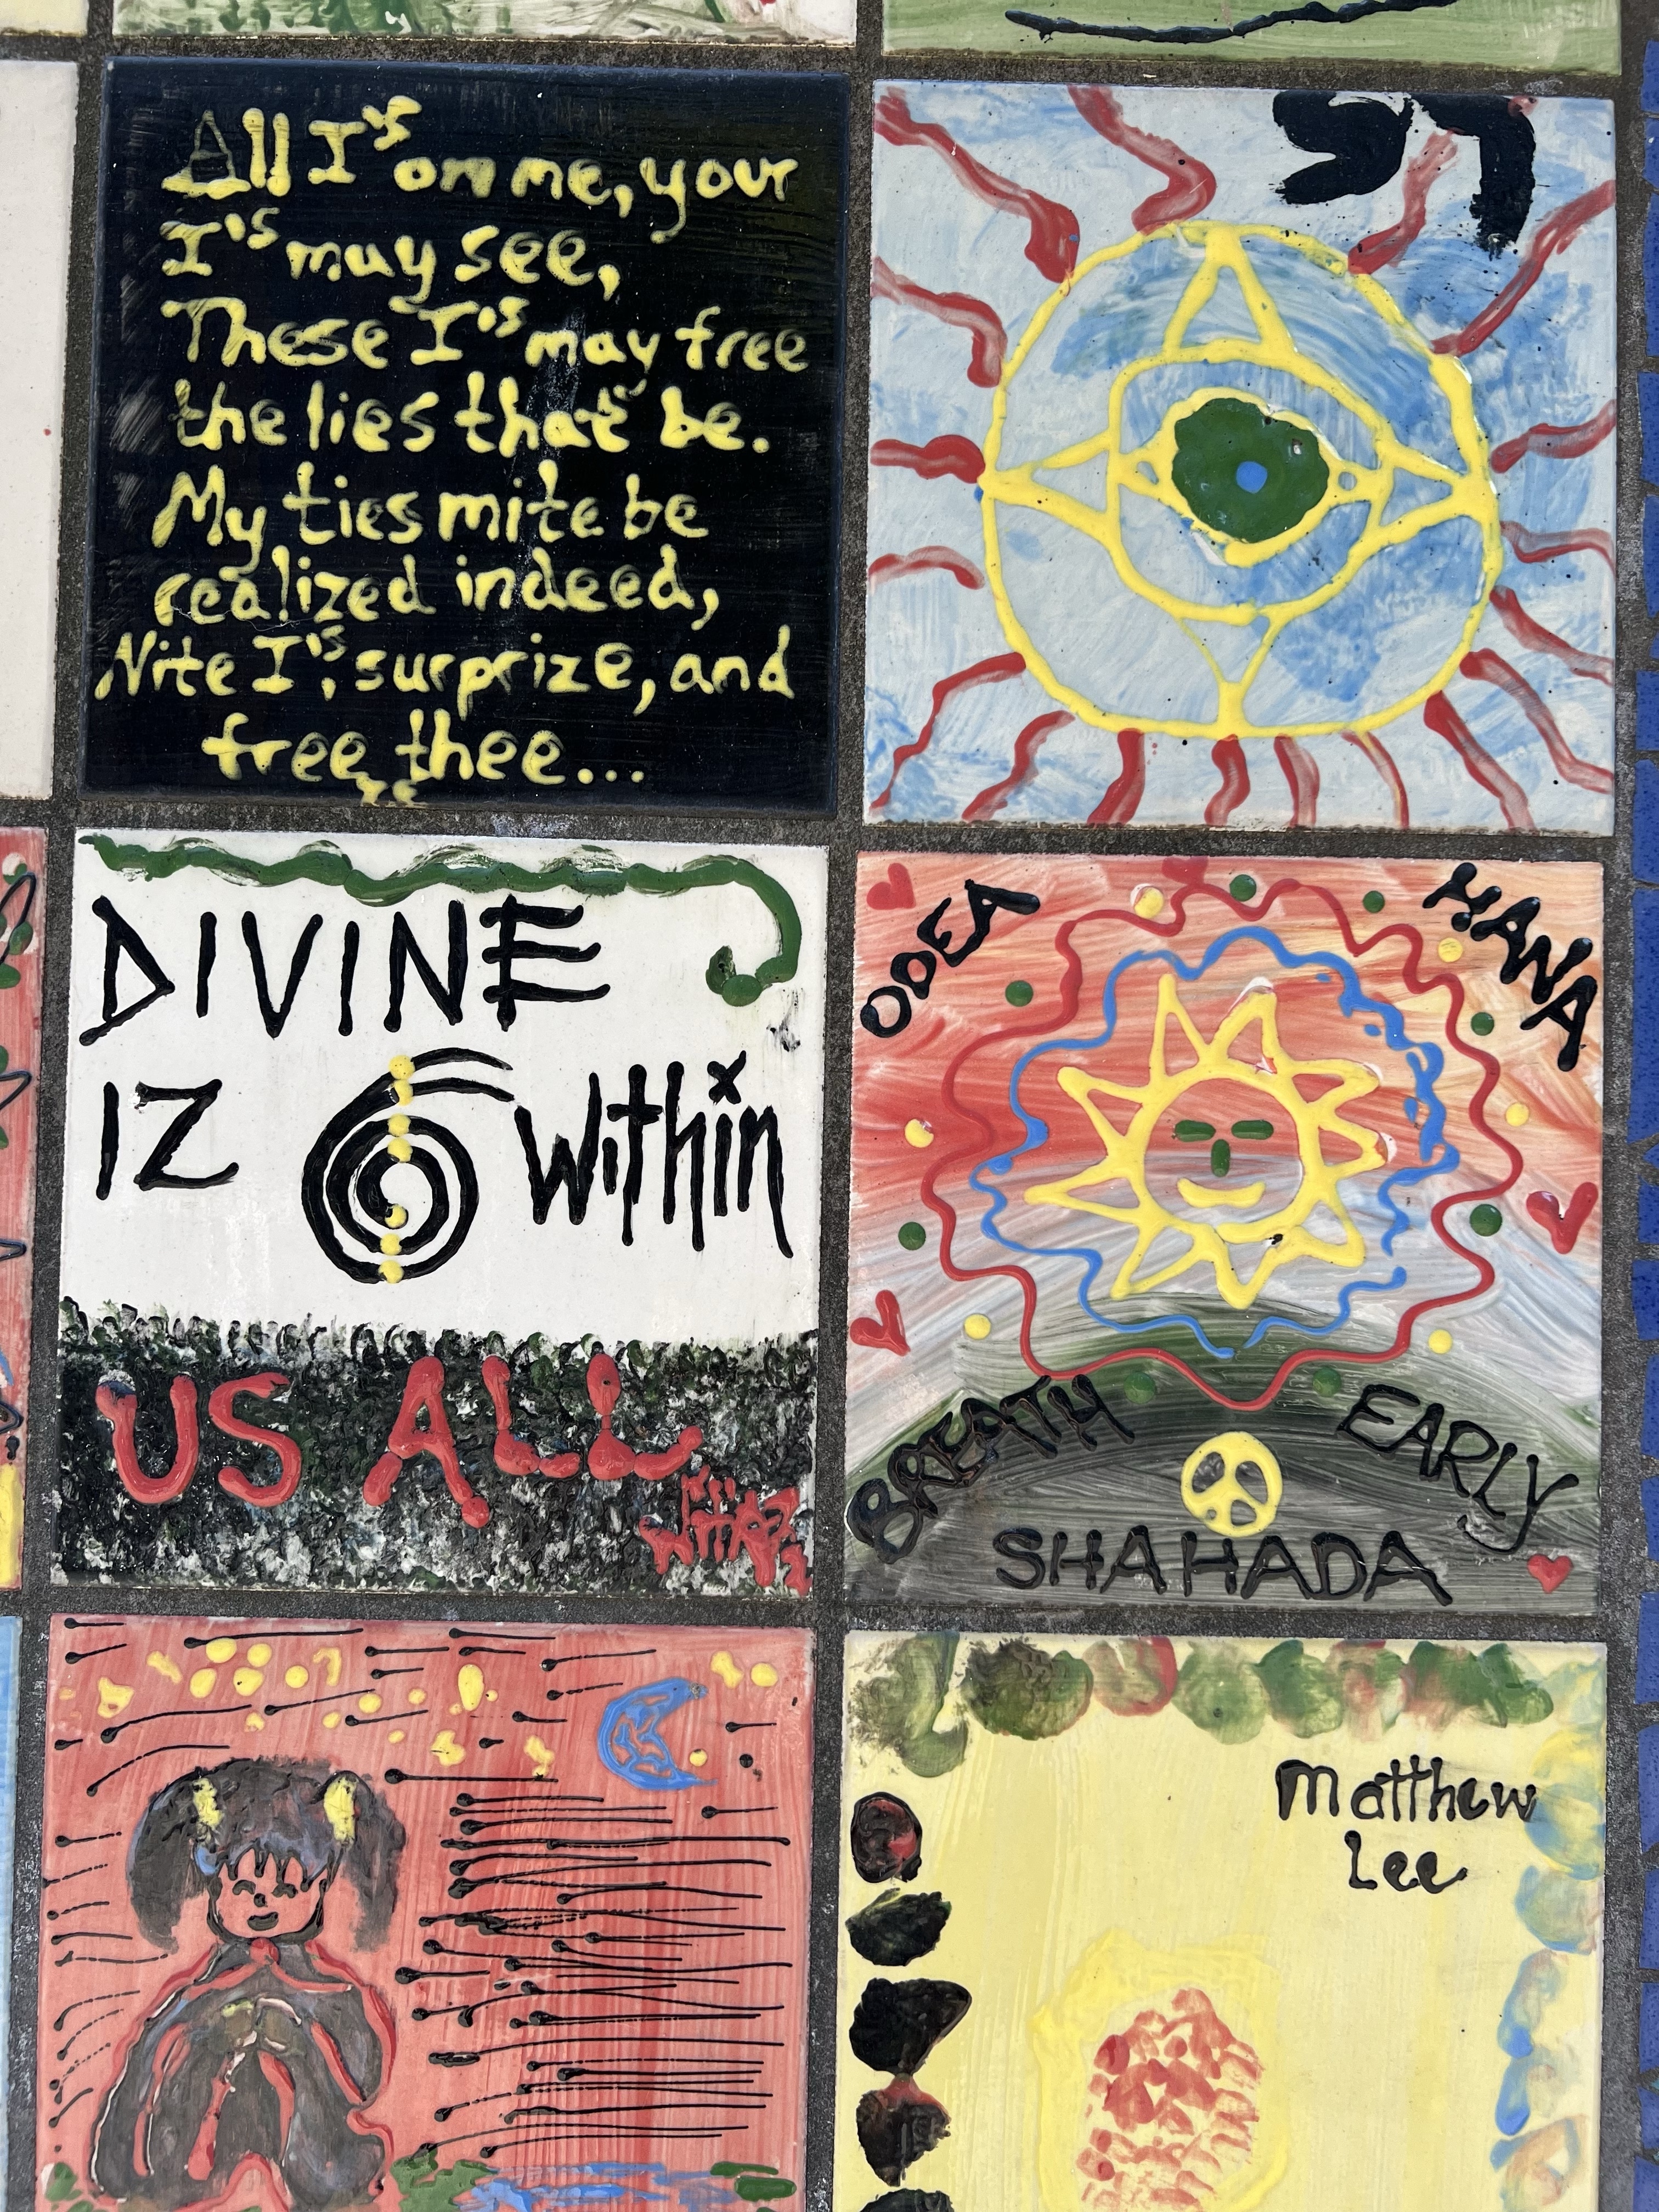 All I's on me, your
I's may see,
These I's may free
the lies that be.
My ties mite be
realized indeed,
Nite I's, surprize, and
free thee...
DIVINE
IZ within
US ALL
ODEA
HANA
BREATH
EARLY
SHAHADA
Matthew
Lee